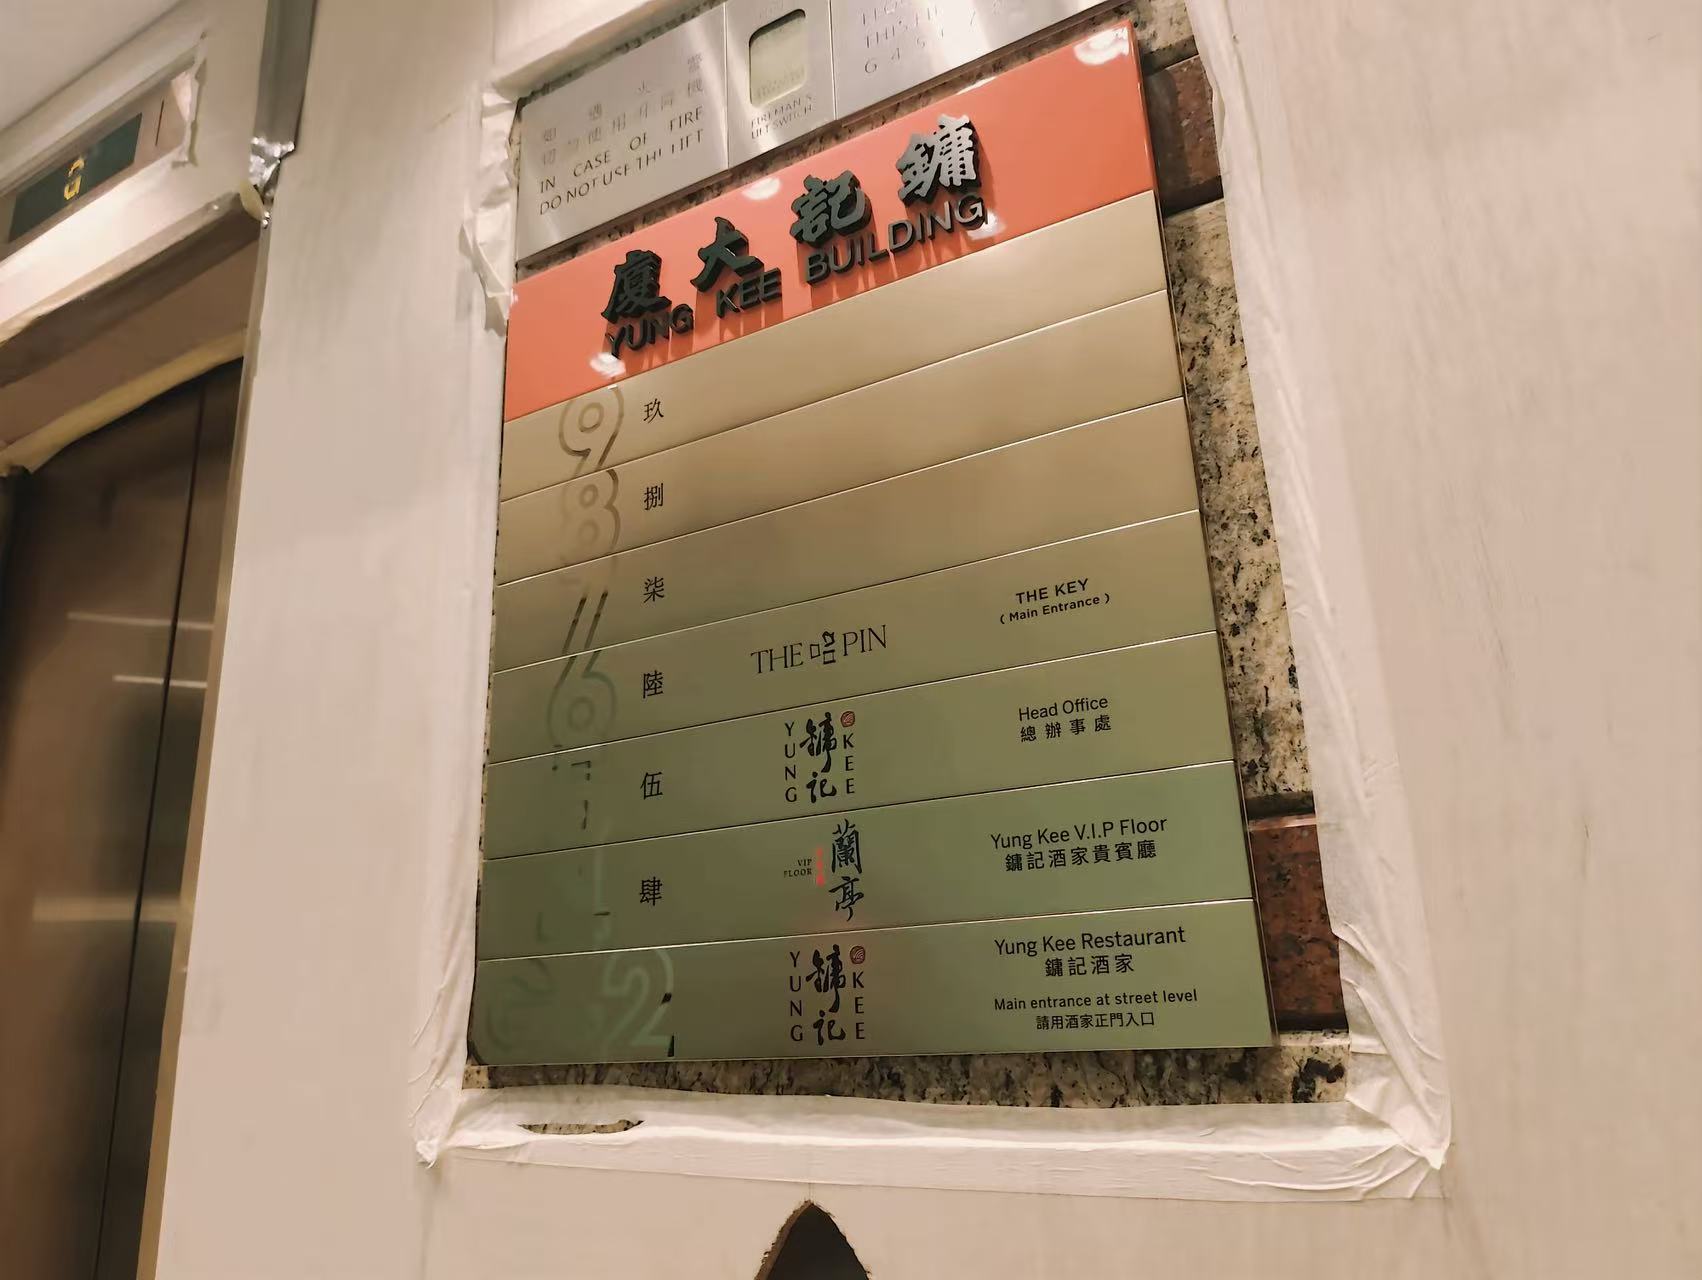 G
如遇火警
切勿使用升降機
IN CASE OF FIRE
DO NOT USE THE LIFT
FIREMAN'S
LIFT SWITCH
廈大記鏞
YUNG KEE BUILDING
9 玖
8 捌
7 柒
6 陸 THE 哈 PIN THE KEY
( Main Entrance )
伍 YUNG 鏞記 KEE Head Office
總辦事處
肆 VIP FLOOR 蘭亭 Yung Kee V.I.P Floor
鏞記酒家貴賓廳
2 YUNG 鏞記 KEE Yung Kee Restaurant
鏞記酒家
Main entrance at street level
請用酒家正門入口